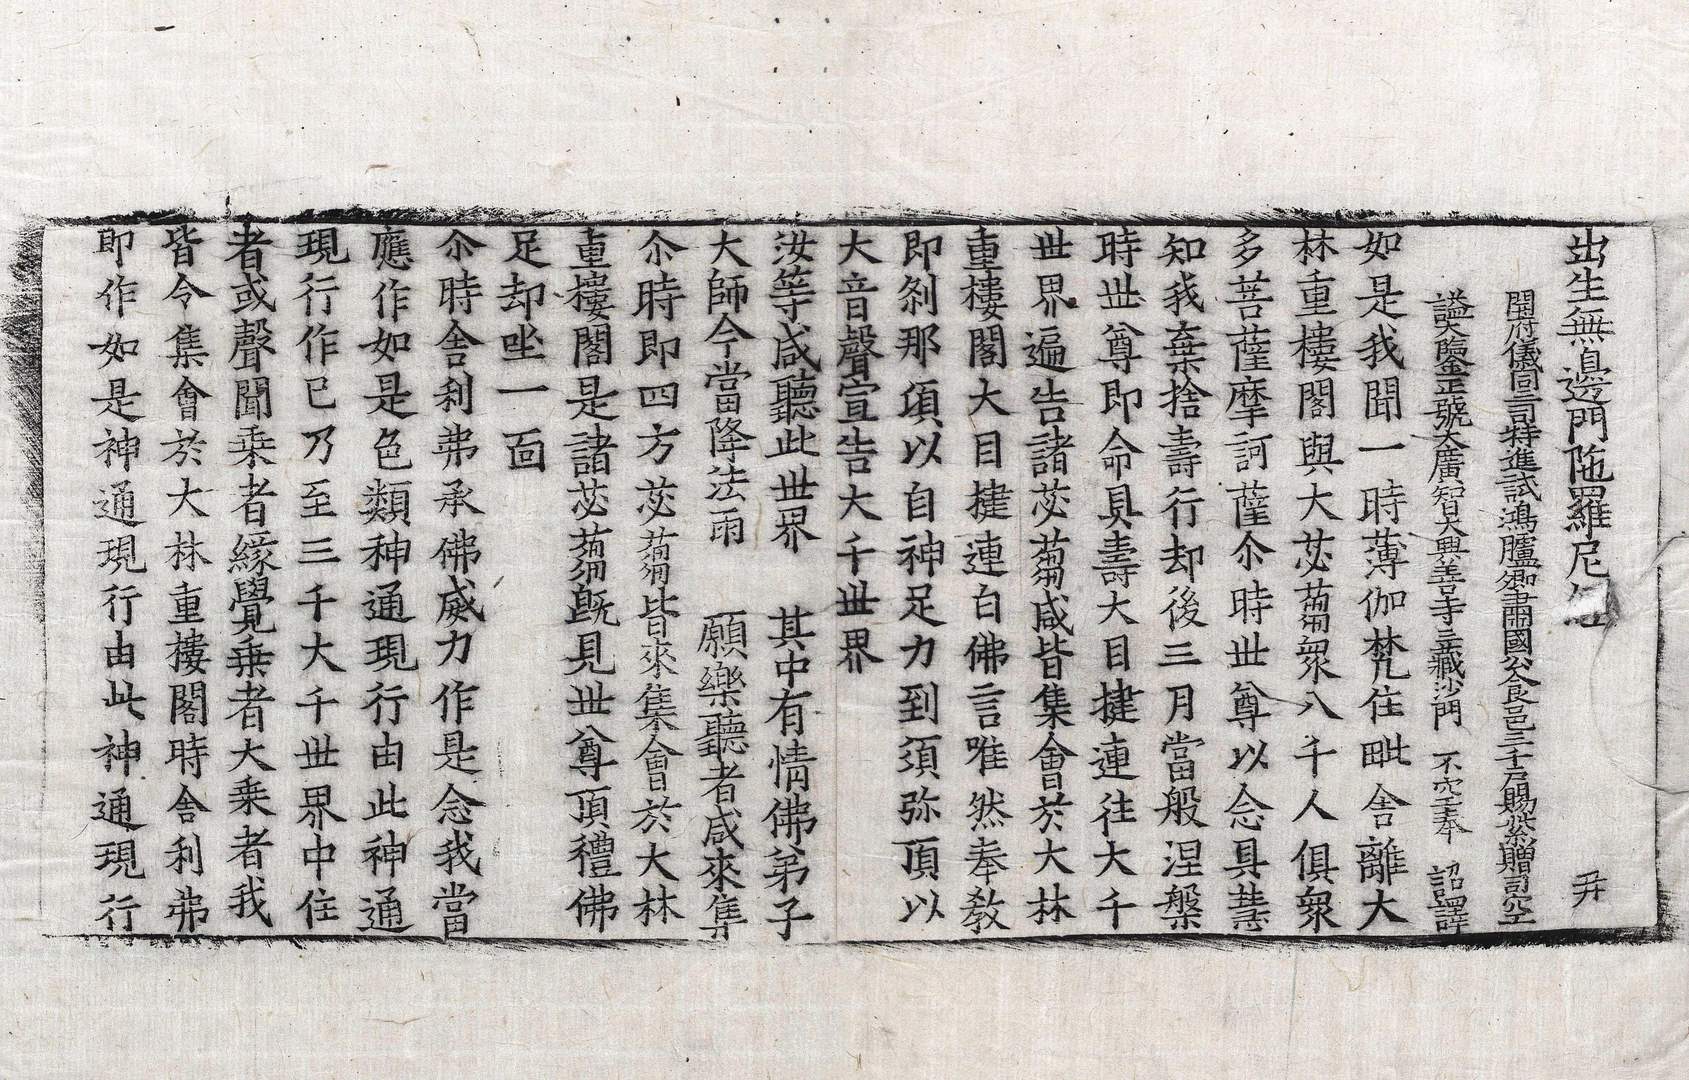 出生無邊門陁羅尼經 尹
開府儀同三司特進試鴻臚卿肅國公食邑三千戶賜紫贈司空
謚大鑒正號大廣智大興善寺三藏沙門 不空奉 詔譯
如是我聞一時薄伽梵住毗舍離大
林重樓閣與大苾蒭衆八千人俱衆
多菩薩摩訶薩尒時世尊以念具慧
知我棄捨壽行却後三月當般涅槃
時世尊即命具壽大目揵連往大千
世界遍告諸苾蒭咸皆集會於大林
重樓閣大目揵連白佛言唯然奉教
即刹那頃以自神足力到須弥頂以
大音聲宣告大千世界
汝等咸聽此世界 其中有情佛弟子
大師今當降法雨 願樂聽者咸來集
尒時即四方苾蒭皆來集會於大林
重樓閣是諸苾蒭旣見世尊頂禮佛
足却坐一面
尒時舍利弗承佛威力作是念我當
應作如是色類神通現行由此神通
現行作已乃至三千大千世界中住
者或聲聞乘者緣覺乘者大乘者我
皆令集會於大林重樓閣時舍利弗
即作如是神通現行由此神通現行